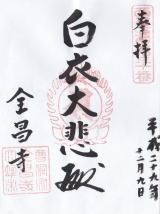 奉拝
白衣大悲殿
平成二十九年
十二月九日
全昌寺